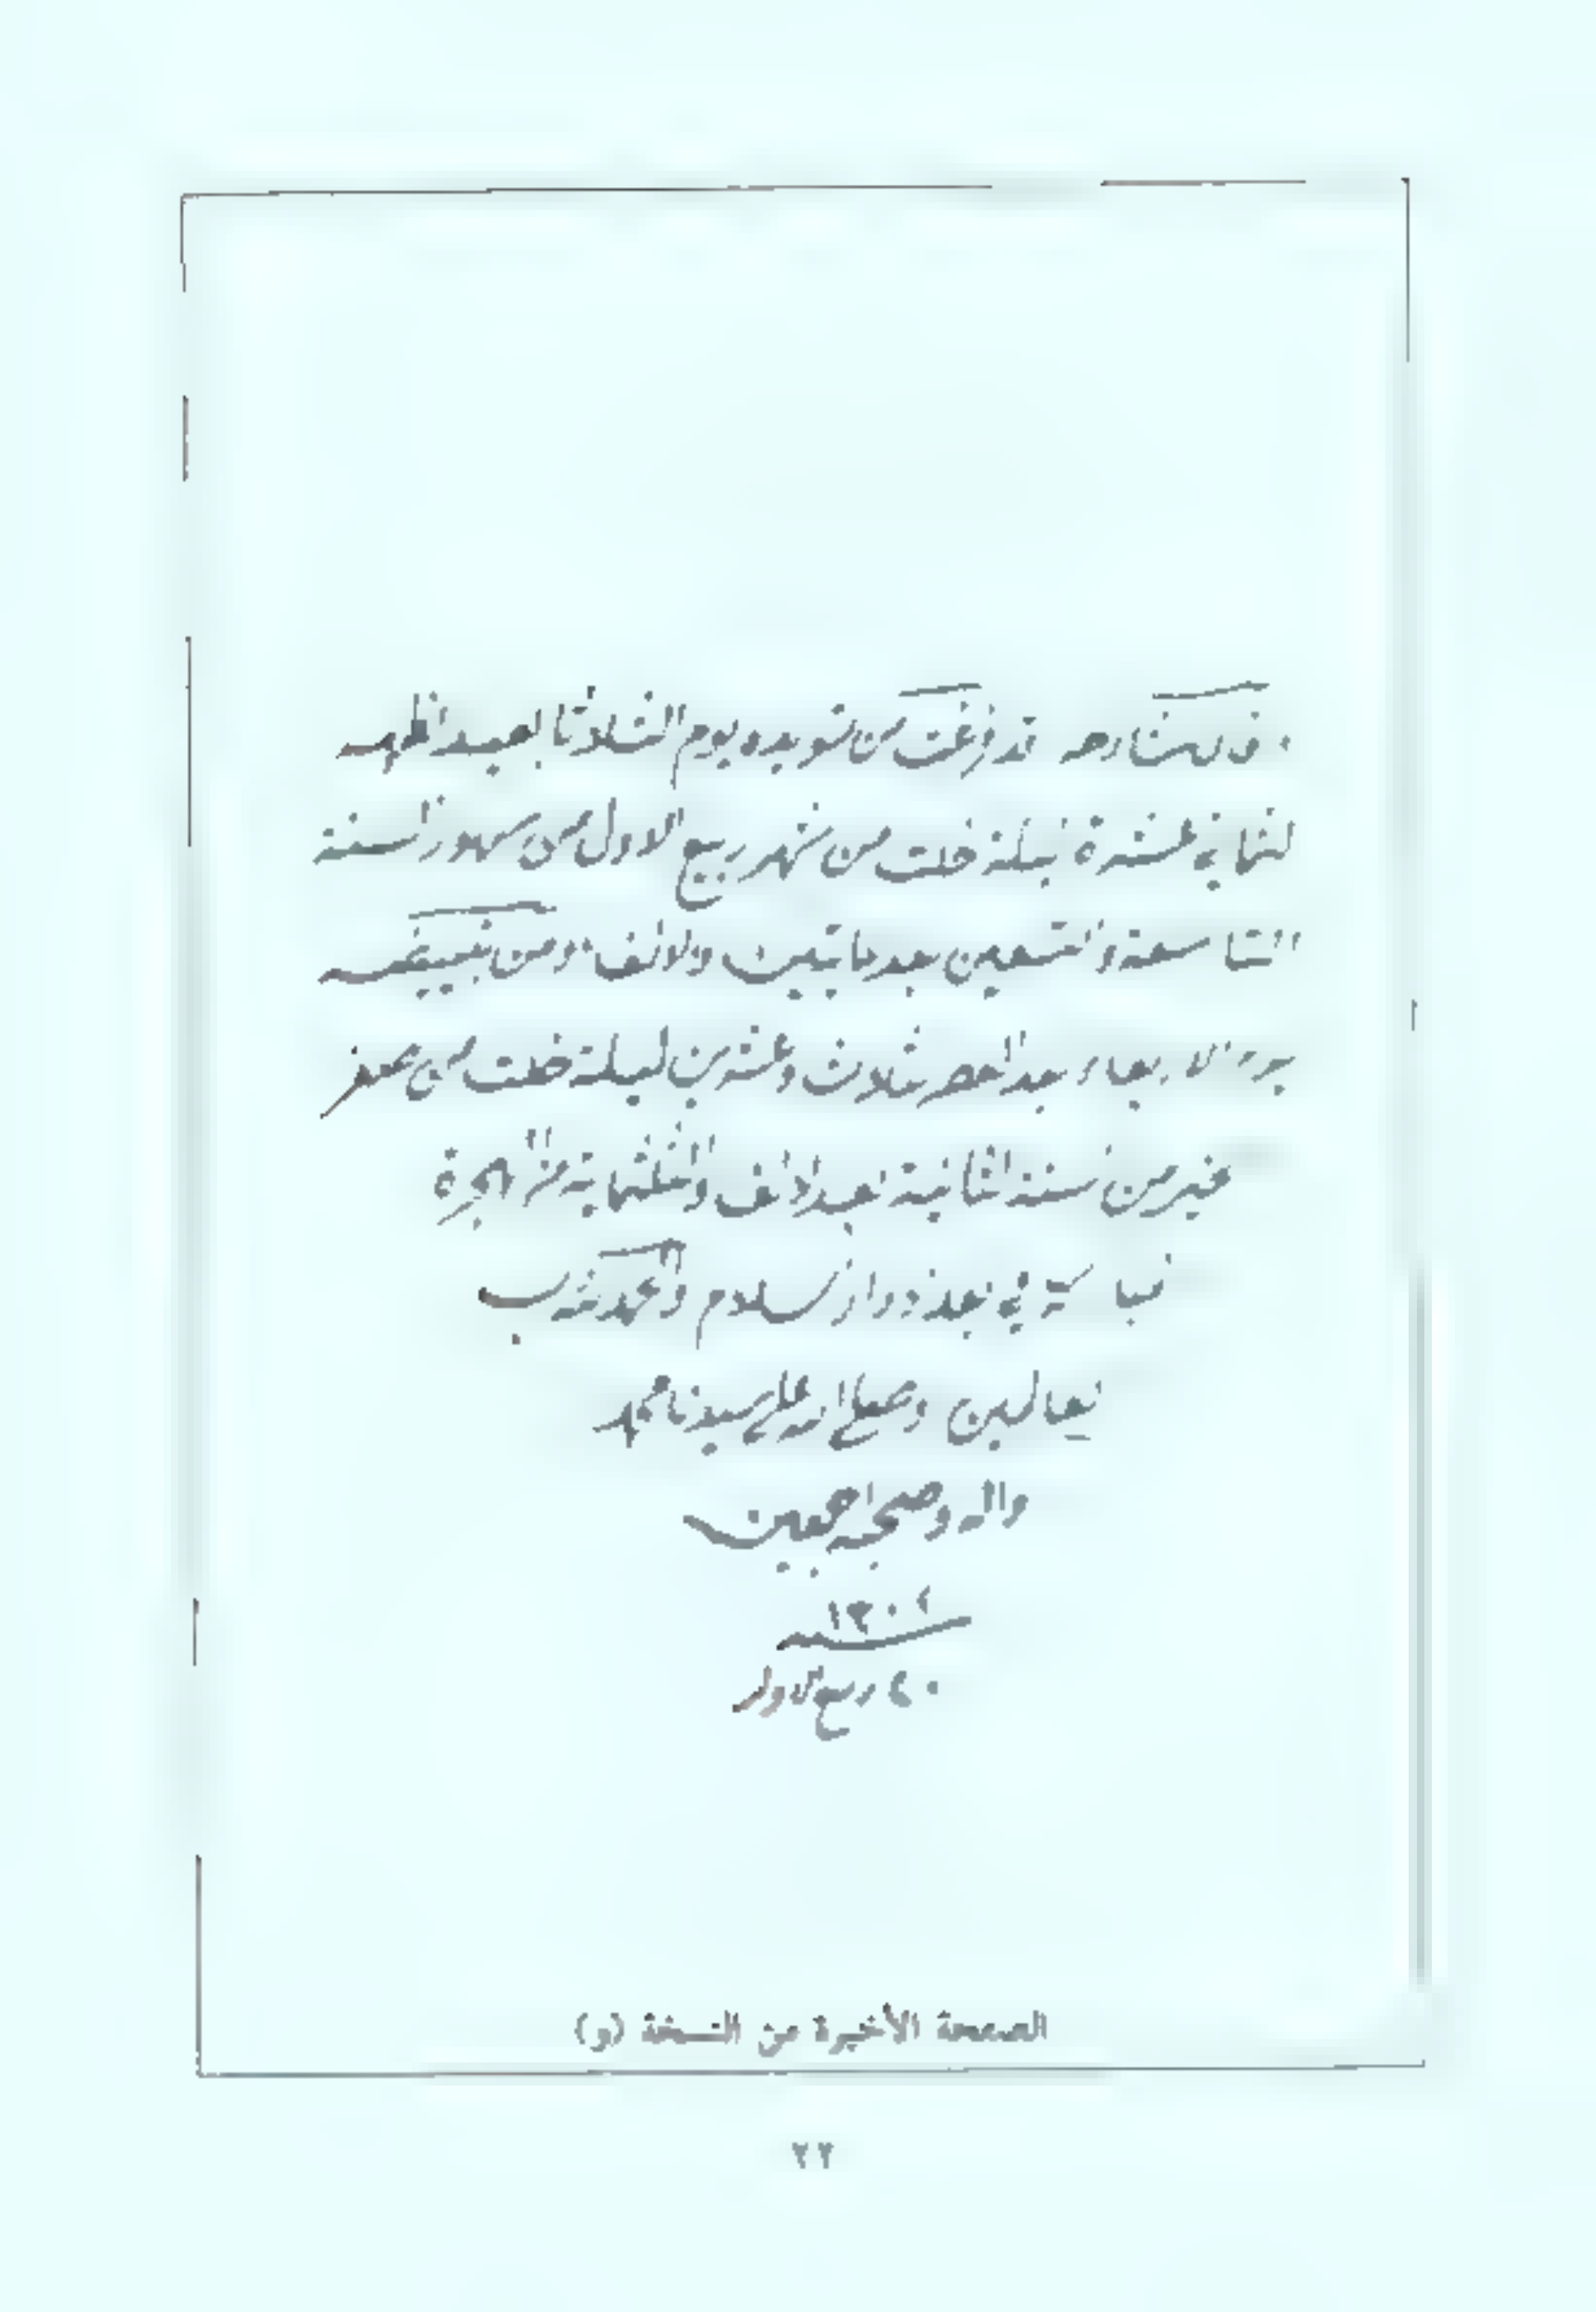 قال الشارحه قد فرغت من تسويده يوم الثلاوثا بعيد الظهر
لثمانية عشرة ليلة خلت من شهر ربيع الاول من شهور السنة
التاسعة والتسعين بعد مايتين والالف ومن تبييضه
يوم الاربعاء بعد العصر لثلاث وعشرين ليلة خلت من صفر
الخير من السنة الثانية بعد الالف والثلثماية من الهجرة
في بغداد دار السلام والحمد لله رب
العالمين وصلى الله على سيدنا محمد
واله وصحبه اجمعين
ربيع الاول
الصفحة الأخيرة من النسخة (و)
٢٢